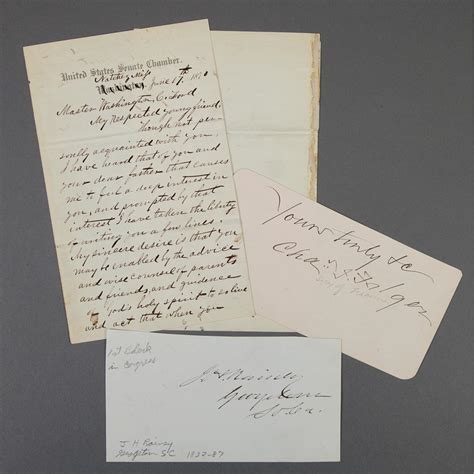 United States Senate Chamber,
Natchez Miss
Washington, June 17th 187
Master Washington
My respected young friend,
Though not per-
sonally acquainted with you,
I have heard that of you and
your dear father that causes
me to feel a deep interest in
you, and prompted by that
interest I have taken the liberty
of writing you a few lines.
My sincere desire is that you
may be enabled by the advice
and wise counsel of parents
and friends, and guidance
of God's holy spirit to so live
and act that when you
Yours truly &c
Chas. J. Folger
1st Black
in Congress
J H Rainey
Georgetown
So. Ca.
J H Rainey
Georgetown SC 1832-87